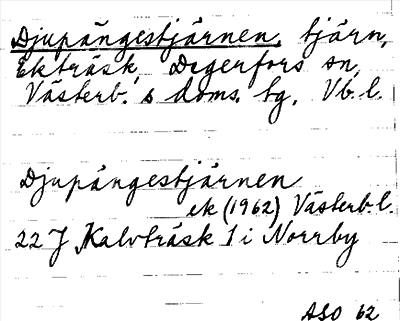 Djupängestjärnen, tjärn,
Ekträsk, Degerfors sn,
Västerb:s doms. tg, Vb. l.
Djupängestjärnen
ek (1962) Västerb. l.
22 J Kalvträsk 1 i Norrby
ASO 62